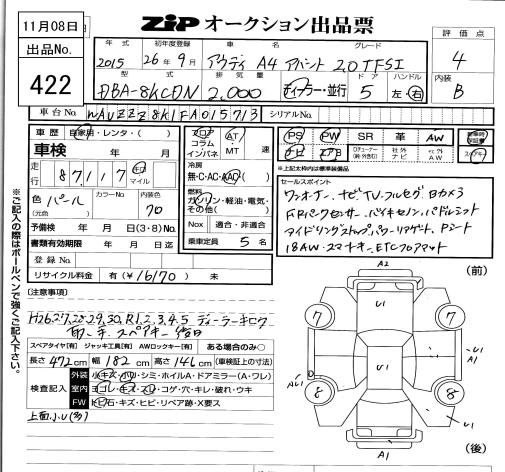 11月08日
出品No.
422
ZIP オークション出品票
評価点
4
内装
B
年式 初年度登録 車名 グレード
2015 26年9月 アウディ A4 アバント 2.0TFSI
型式 排気量 ドア ハンドル
DBA-8KCDN 2,000 ディーラー・並行 5 左・右
車台No. WAUZZZ8K1FA015713 シリアルNo.
車歴 自家用・レンタ・( )
車検 年 月
走行 87,117 km マイル
色 パール
(元色 )
カラーNo
内装色
70
予備検 年 月 日(3・8)No.
書類有効期限 年 月 日迄
登録No.
リサイクル料金 有(¥16170) 未
フロア
コラム
インパネ
AT
MT
速
冷房
無・C・AC・AAC
燃料
ガソリン・軽油・電気・
その他( )
Nox 適合・非適合
乗車定員 5 名
PS PW SR 革 AW
ナビ エアB 社外ナビ 社外AW
※上記太枠内は標準装備品
セールスポイント
ワンオーナー、ナビ、TV、フルセグ、Bカメラ
FRパークセンサー、バイキセノン、パドルシフト
アイドリングストップ、パワーリアゲート、Pシート
18AW、スマートキー、ETC、フロアマット
※ご記入の際はボールペンで強くご記入下さい。
[注意事項]
H26,27,28,29,30,R1,2,3,4,5 ディーラーキロク
スペアタイヤ[有] ジャッキ工具[有] AWロックキー[有] ある場合のみ○
長さ 472 cm 幅 182 cm 高さ 146 cm (車検証上の寸法)
検査記入
外装 小キズ・小U・シミ・ホイルA・ドアミラー(A・ワレ)
室内 ヨゴレ・キズ・スレ・コゲ・穴・キレ・破れ・ウキ
FW トビ石・キズ・ヒビ・リペア跡・X要ス
上面小U(多)
(前)
A2
U1
7 7
U1
A1
U1
AU1
8 8
U1
A1
(後)